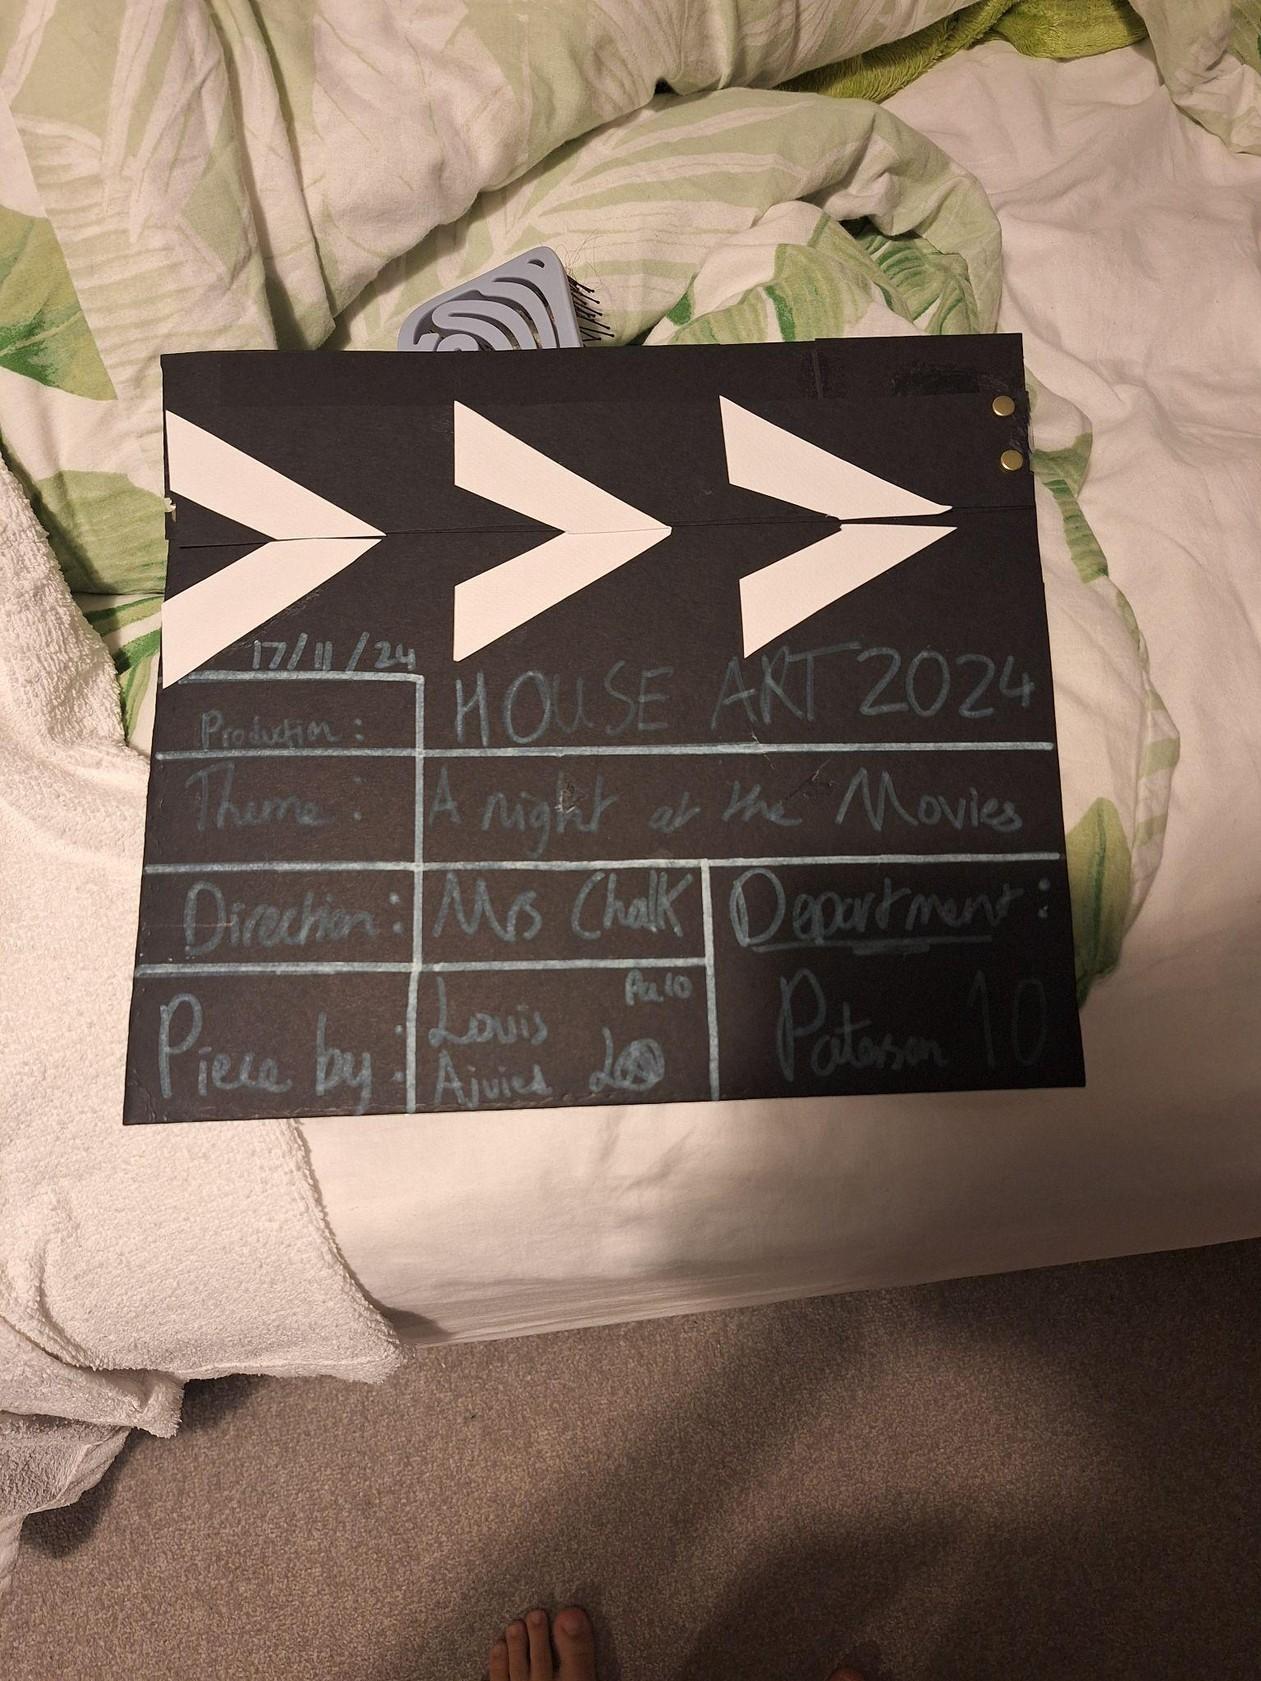 17/11/24
Production: HOUSE ART 2024
Theme: A night at the Movies
Direction: Mrs Chalk
Department:
Paterson 10
Piece by: Louis
Pa10